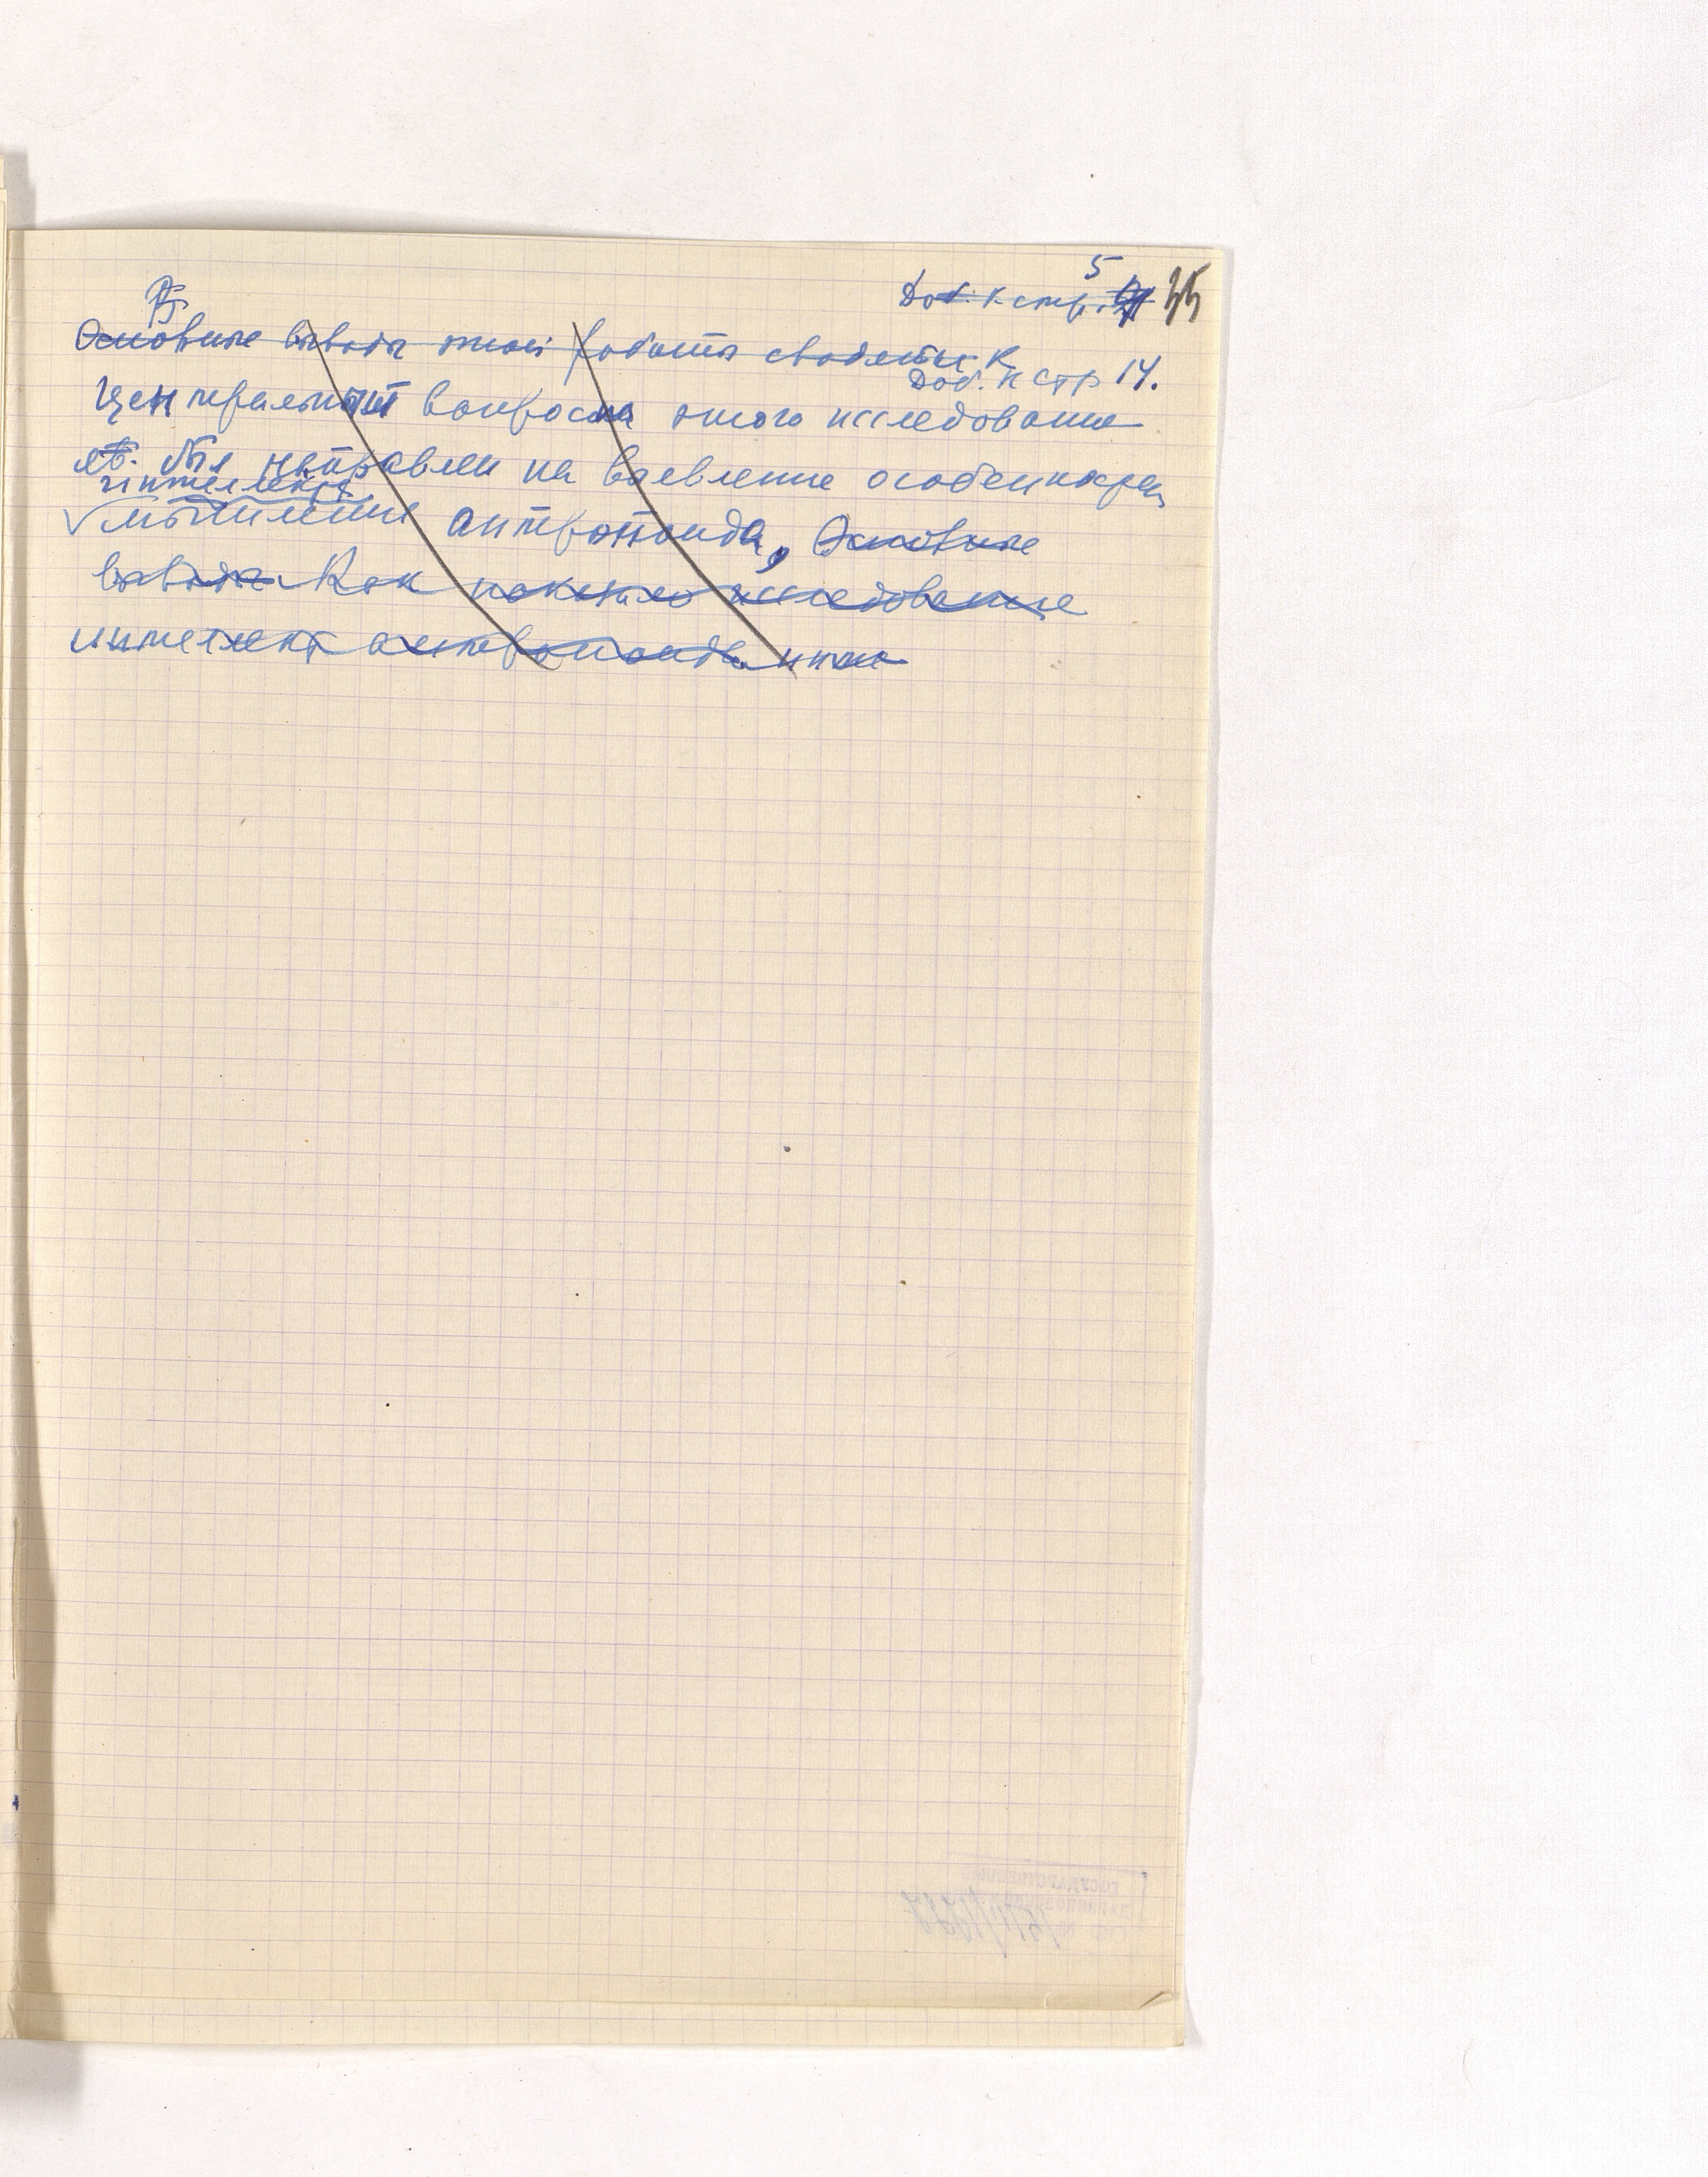 Доб. к стр. 5
35
Основные выводы этой работы сводятся к
Доб. к стр 14.
Центральный вопрос этого исследования
был направлен на выевление особенностей
интеллекта
мышление антропоида, Основные
выводы Как показало исследование
интеллект антропоида